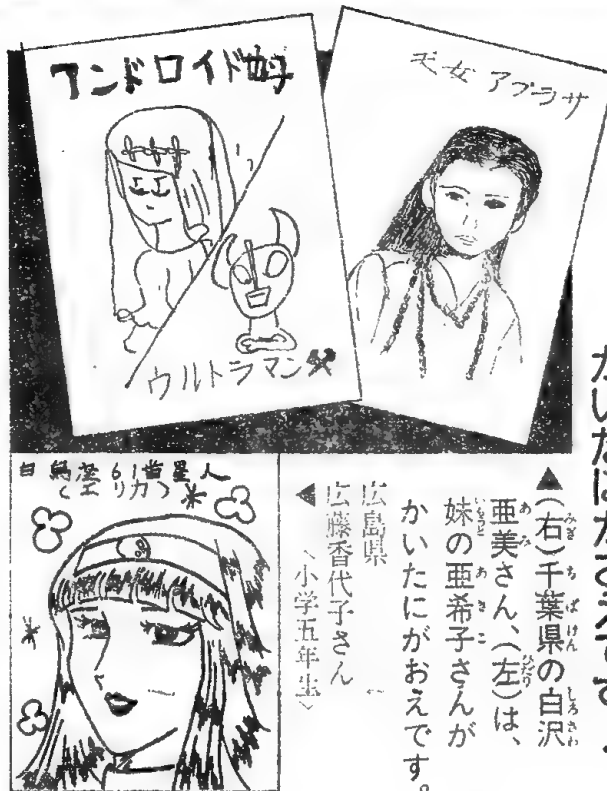 アンドロイド
ウルトラマン父
天女アプラサ
白鳥座61番星人
(エリカ)
▲(右)千葉県の白沢
亜美さん、(左)は、
妹の亜希子さんが
かいたにがおえです。
◀広島県
広藤香代子さん
〈小学五年生〉